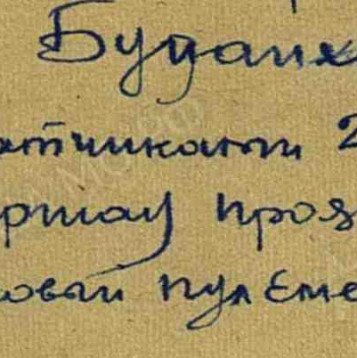 Будайх
атчикати 2
ртау проя
овый пулеме